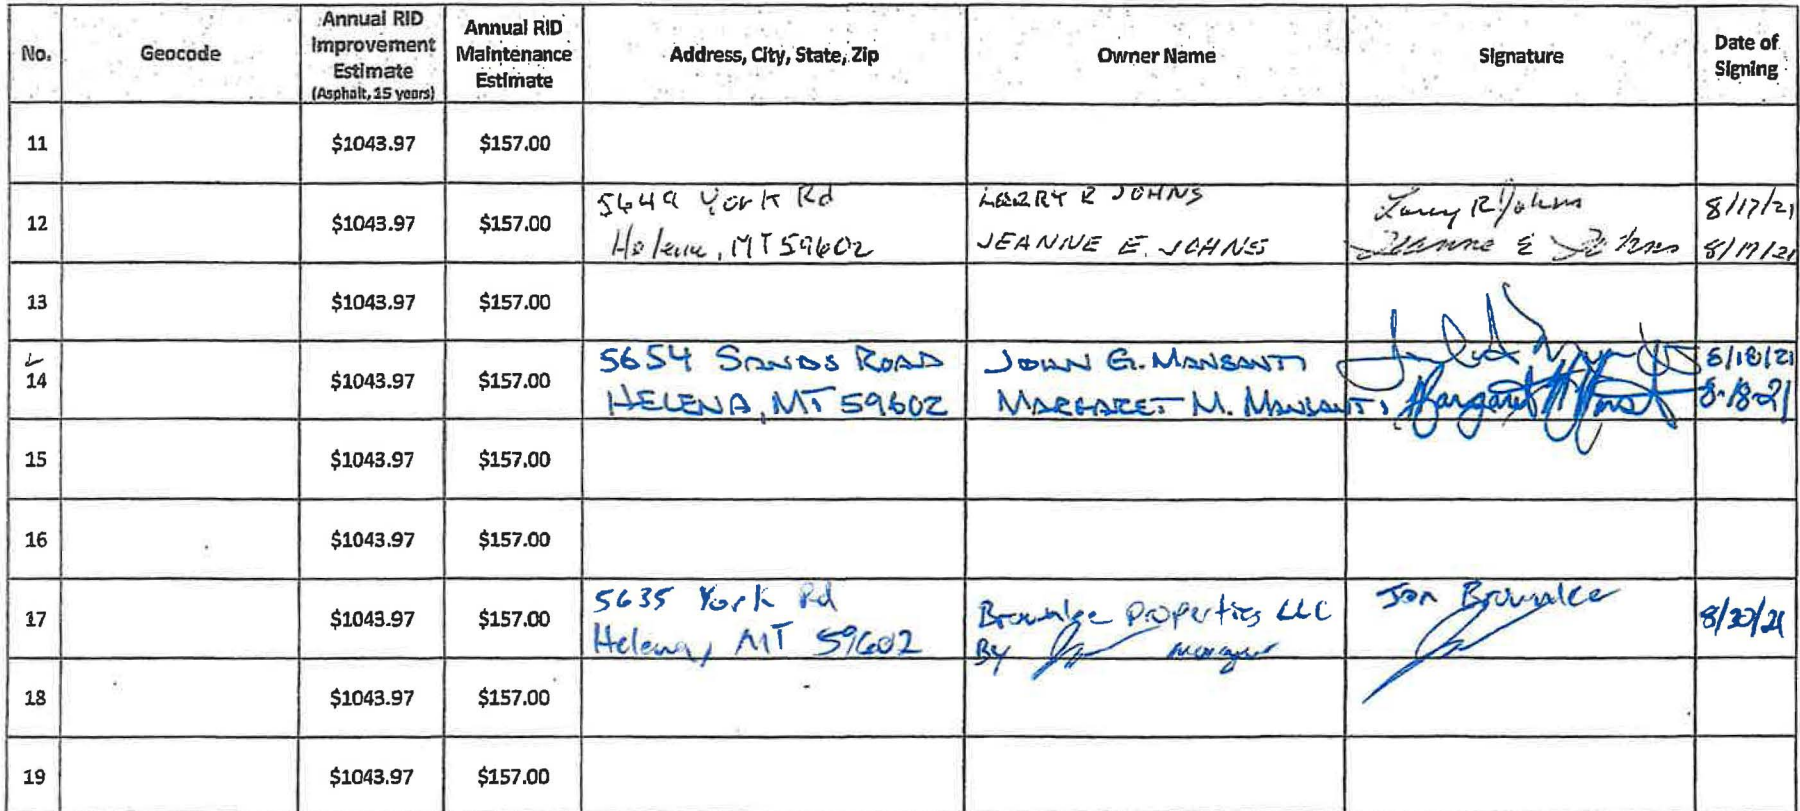 No.
Geocode
Annual RID
Improvement
Estimate
(Asphalt, 15 years)
Annual RID
Maintenance
Estimate
Address, City, State, Zip
Owner Name
Signature
Date of
Signing
11
$1043.97
$157.00
12
$1043.97
$157.00
5649 York Rd
Helena, MT 59602
LARRY R JOHNS
JEANNE E. JOHNS
Larry R Johns
Jeanne E Johns
8/17/21
8/17/21
13
$1043.97
$157.00
14
$1043.97
$157.00
5654 SANDS ROAD
HELENA, MT 59602
JOHN G. MANSANTI
MARGARET M. MANSANTI
Margaret M
8/18/21
8-18-21
15
$1043.97
$157.00
16
$1043.97
$157.00
17
$1043.97
$157.00
5635 York Rd
Helena, MT 59602
Brownlee Properties LLC
By manager
Jon Brownlee
8/30/21
18
$1043.97
$157.00
19
$1043.97
$157.00